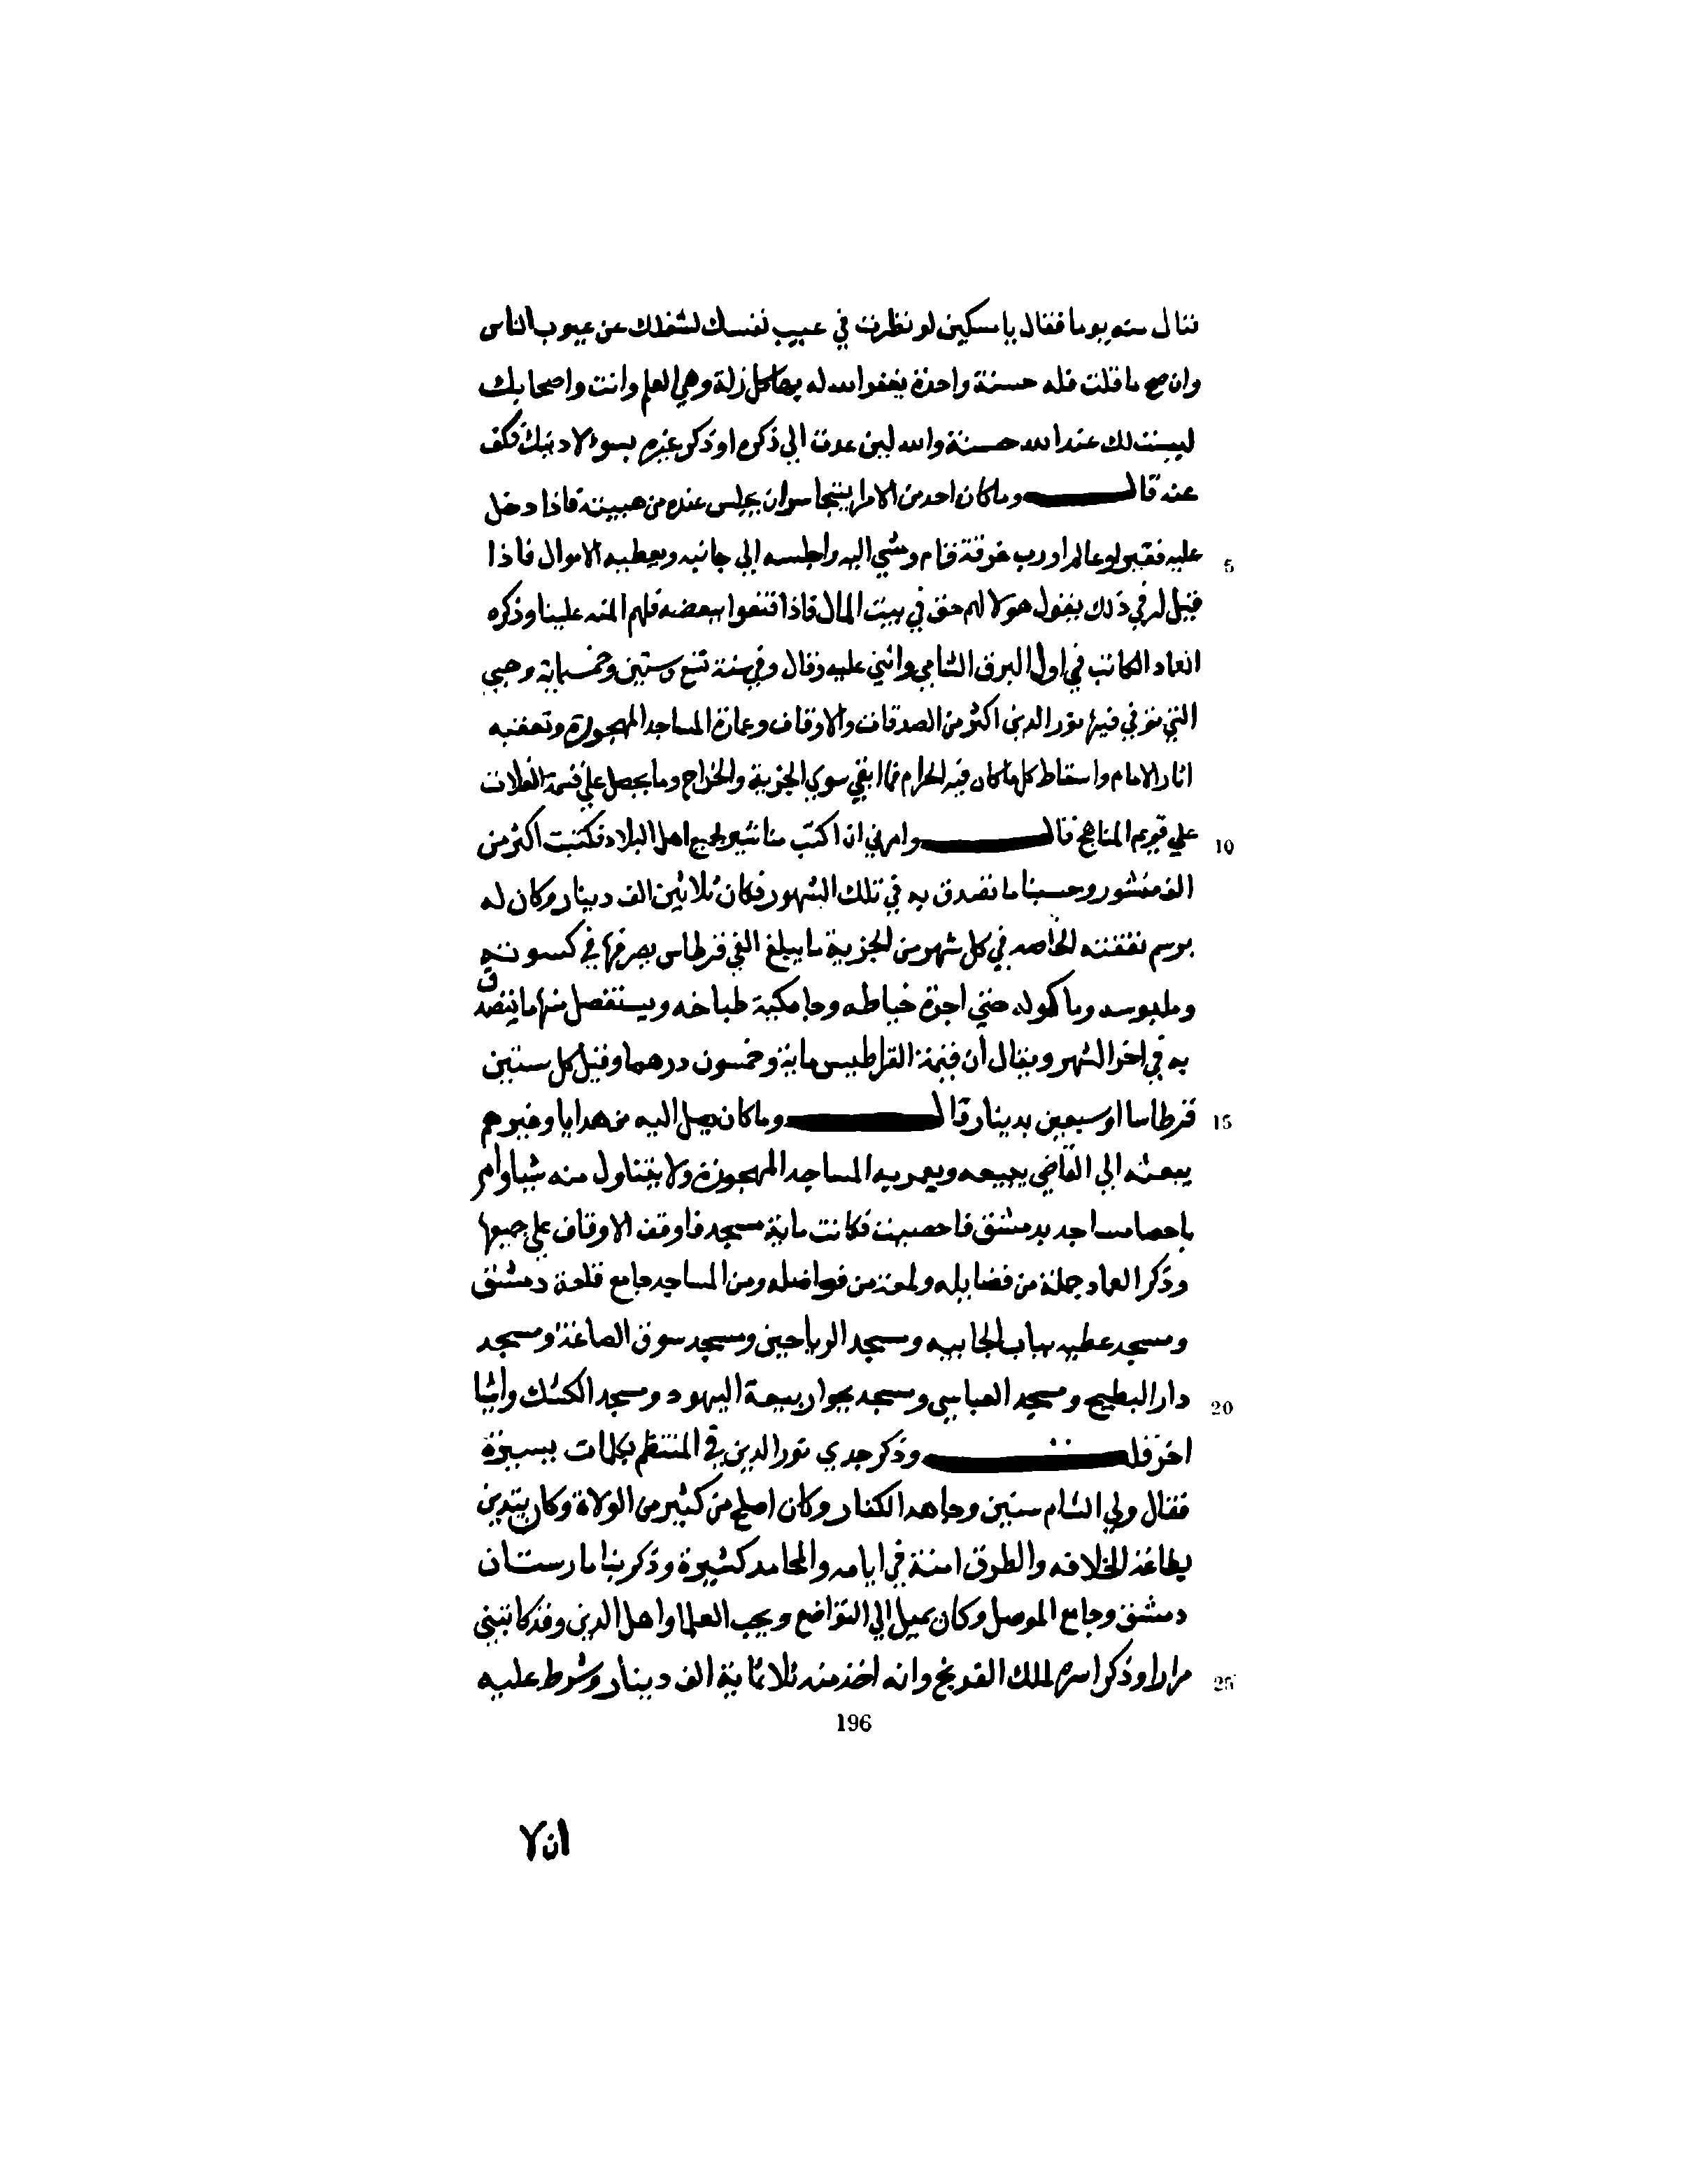 فنال منه يوما فقال يا مسكين لو نظرت في عيب نفسك لشغلك عن عيوب الناس
وان صح ما قلت فله حسنة واحدة يغفر الله له بها كل زلة وهي العلم وانت واصحابك
ليست لك عند الله حسنة والله لين عدت الي ذكره او ذكر غيره بسوء لادبنك فكف
عنه قال وما كان احد من الامرا يتجاسر ان يجلس عنده من هيبته فاذا دخل
5 عليه فقير او عالم او رب خرقة قام ومشي اليه واجلسه الي جانبه ويعطيه الاموال فاذا
قيل له في ذلك يقول هولا لهم حق في بيت المال فاذا قنعوا ببعضه فلهم المنه علينا وذكره
العماد الكاتب في اول البرق الشامي واثني عليه وقال وفي سنة تسع وستين وخمسماية وهي
التي توفي فيها نور الدين اكثر من الصدقات والاوقاف وعمارة المساجد المهجورة وتعفيه
اثار الاثام واسقاط كل ما كان فيه الحرام فما ابقي سوي الجزية والخراج وما يحصل علي قسمة الغلات
10 علي قويم المناهج قال وامرني ان اكتب مناشير لجميع اهل البلاد فكتبت اكثر من
الف منشور وحسبنا ما تصدق به في تلك الشهور فكان ثلاثين الف دينار وكان له
برسم نفقته الخاصه في كل شهر من الجزية ما يبلغ الفي قرطاس يصرفها في كسوته
وملبوسه وماكوله حتي اجرة خياطه وجامكية طباخه ويستفضل منها ما يتصدق
به في اخر الشهر ويقال ان قيمة القراطيس ماية وخمسون درهما وقيل كل ستين
15 قرطاسا او سبعين بدينار قال وما كان يصل اليه من هدايا وغيرهم
يبعثه الي القاضي يبيعه ويعمر به المساجد المهجورة ولا يتناول منه شيا وامر
باحصا مساجد بدمشق فاحصيت فكانت ماية مسجد فاوقف الاوقاف علي جميعها
وذكر العماد جملة من فضايله ولمعة من فواضله ومن المساجد جامع قلعة دمشق
ومسجد عطيه بباب الجابيه ومسجد الرماحين ومسجد سوق الصاغة ومسجد
20 دار البطيخ ومسجد العباسي ومسجد بجوار بيعة اليهود ومسجد الكشك واشيا
اخر قلت وذكر جدي نور الدين في المنتظم بكلمات يسيرة
فقال ولي الشام سنين وجاهد الكفار وكان اصلح من كثير من الولاة وكان يتدين
بطاعة الخلافه والطرق امنة في ايامه والمحامد كثيرة وذكر بنا مارستان
دمشق وجامع الموصل وكان يميل الي التواضع ويحب العلما واهل الدين وقد كاتبني
25 مرارا وذكر اسره لملك الفرنج وانه اخذ منه ثلاثماية الف دينار وشرط عليه
196